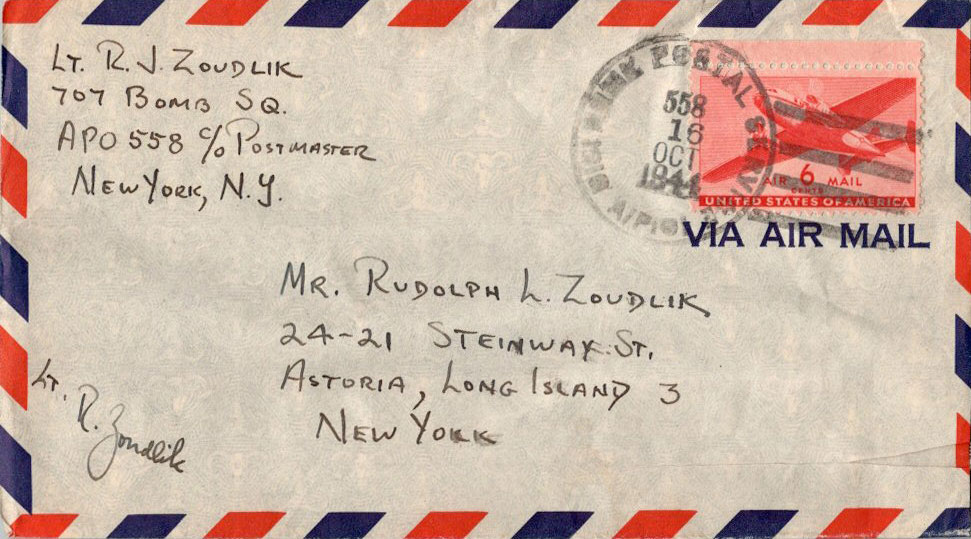 LT. R. J. ZOUDLIK
707 BOMB SQ.
APO 558 c/o POSTMASTER
NEW YORK, N.Y.
POSTAL SERVICE
558
16
OCT
AIR 6 MAIL
CENTS
UNITED STATES OF AMERICA
VIA AIR MAIL
MR. RUDOLPH L. ZOUDLIK
24-21 STEINWAY ST.
ASTORIA, LONG ISLAND 3
NEW YORK
LT.
R. Zoudlik